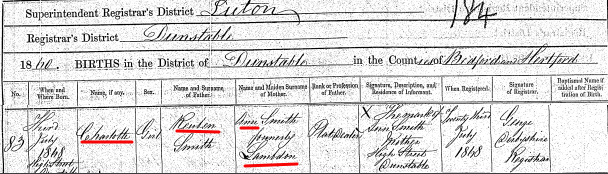 Superintendent Registrar's District Luton 184
Registrar's District Dunstable
1860. BIRTHS in the District of Dunstable in the Counties of Bedford and Hertford
No. When and Where Born. Name, if any. Sex. Name and Surname of Father. Name and Maiden Surname of Mother. Rank or Profession of Father. Signature, Description, and Residence of Informant. When Registered. Signature of Registrar. Baptismal Name if added after Registration of Birth.
83 Third July 1848 High Street Dunstable
Charlotte
Girl
Reuben Smith
Ann Smith formerly Lambden
Plat Dealer
X The mark of Ann Smith Mother High Street Dunstable
Twenty third July 1848
George Derbyshire Registrar